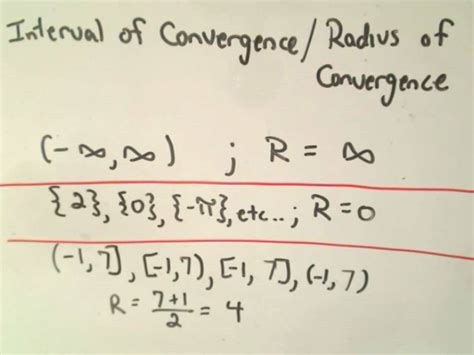 Interval of Convergence/ Radius of
Convergence
(-∞, ∞) ; R = ∞
{2}, {0}, {-π}, etc..; R=0
(-1, 7], [-1, 7), [-1, 7], (-1, 7)
R = 7+1/2 = 4